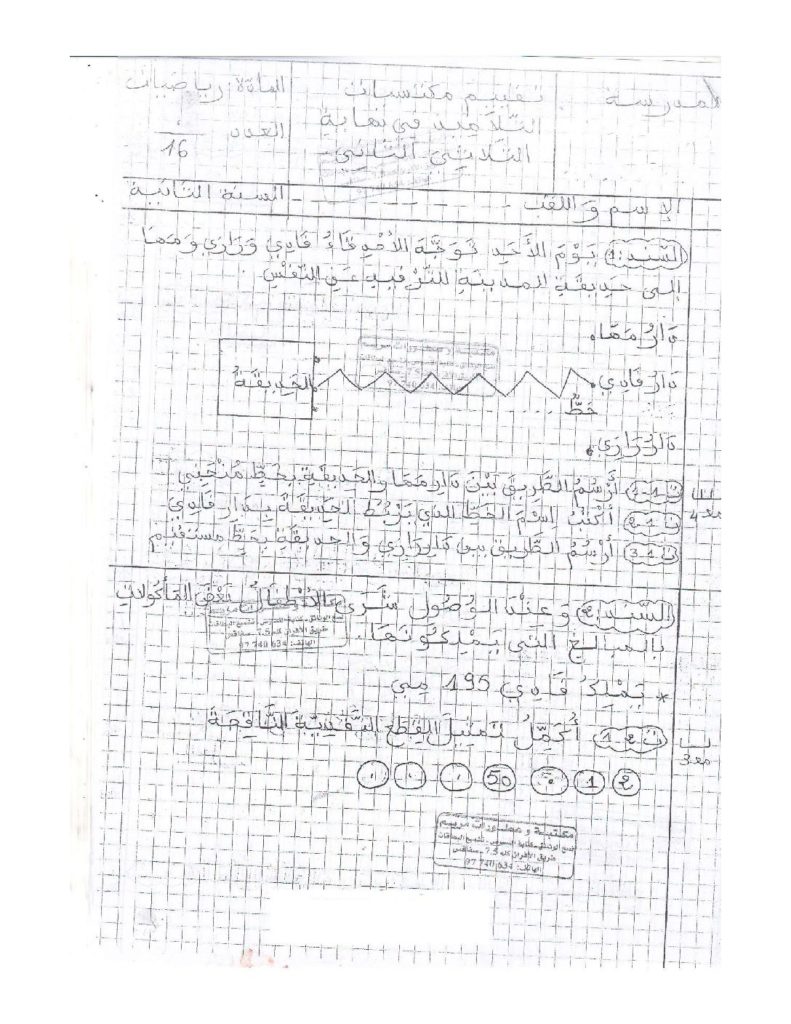 المدرسة
تقييم مكتسبات
التلاميذ في نهاية
الثلاثي الثاني
المادة رياضيات
العدد
16
الإسم و اللقب - - - - - - - - السنة الثانية
السّند:1 يَوْمَ الأَحَدِ تَوَجَّهَ الأَصْدِقَاءُ فَادِي وَرَازِي وَمَهَا
إلى حَدِيقَةِ المدينةِ للتّرْفيهِ عَنِ النّفْسِ.
دَارُ مَهَا
دَارُ فَادِي
الحَدِيقَةُ
خَطٌّ ..........
دَارُ رَازِي
ت-1-1 أَرْسُمُ الطَّرِيقَ بَيْنَ دَارِ مَهَا والحَدِيقَةِ بِخَطٍّ مُنْحَنِي
مع4
ت-1-2 أَكْتُبُ اِسْمَ الخَطِّ الذي يَرْبُطُ الحَدِيقَةَ بِدَارِ فَادِي
ت-1-3 أَرْسُمُ الطَّرِيقَ بين دَارِ رَازِي وَالحديقَةِ بِخَطٍّ مستقيم
السّند:2 وَعِنْدَ الوُصُولِ اشْتَرَى الأَطْفَالُ بَعْضَ المَأْكُولاتِ
بِالمبالغِ التي يَمْلِكُونَهَا.
* يَمْلِكُ فَادِي 195 مي
ت-2-1 أُكَمِّلُ تَمْثِيلَ القِطَعِ النَّقْدِيَّةِ النَّاقِصَةِ
مع3
2 1 . 50 . . .
مكتبة و مطبوعات مريم
طريق الأفران كلم 7.5 - صفاقس
الهاتف: 97 740 634